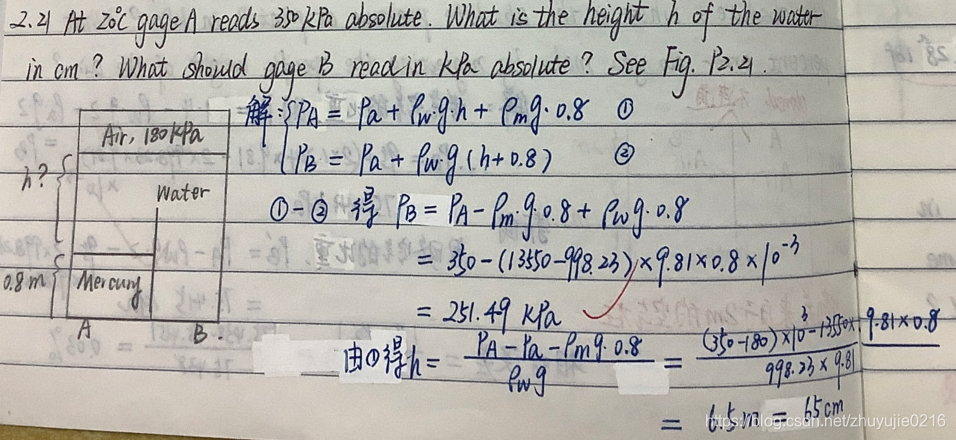 2.21 At 20°C gage A reads 350 kPa absolute. What is the height h of the water
in cm? What should gage B read in kPa absolute? See Fig. P2.21.
Air, 180 kPa
h?
Water
0.8 m
Mercury
A B
解: { PA = Pa + ρw·g·h + ρm g·0.8 ①
PB = Pa + ρw·g (h+0.8) ②
①-② 得 PB = PA - ρm·g·0.8 + ρw g·0.8
= 350 - (13550-998.23) × 9.81 × 0.8 × 10⁻³
= 251.49 kPa
由①得 h = (PA - Pa - ρm g·0.8) / (ρw g) = ((350-180) × 10³ - 13550 × 9.81 × 0.8) / (998.23 × 9.81)
= 6.5 m = 65 cm
https://blog.csdn.net/zhuyujie0216